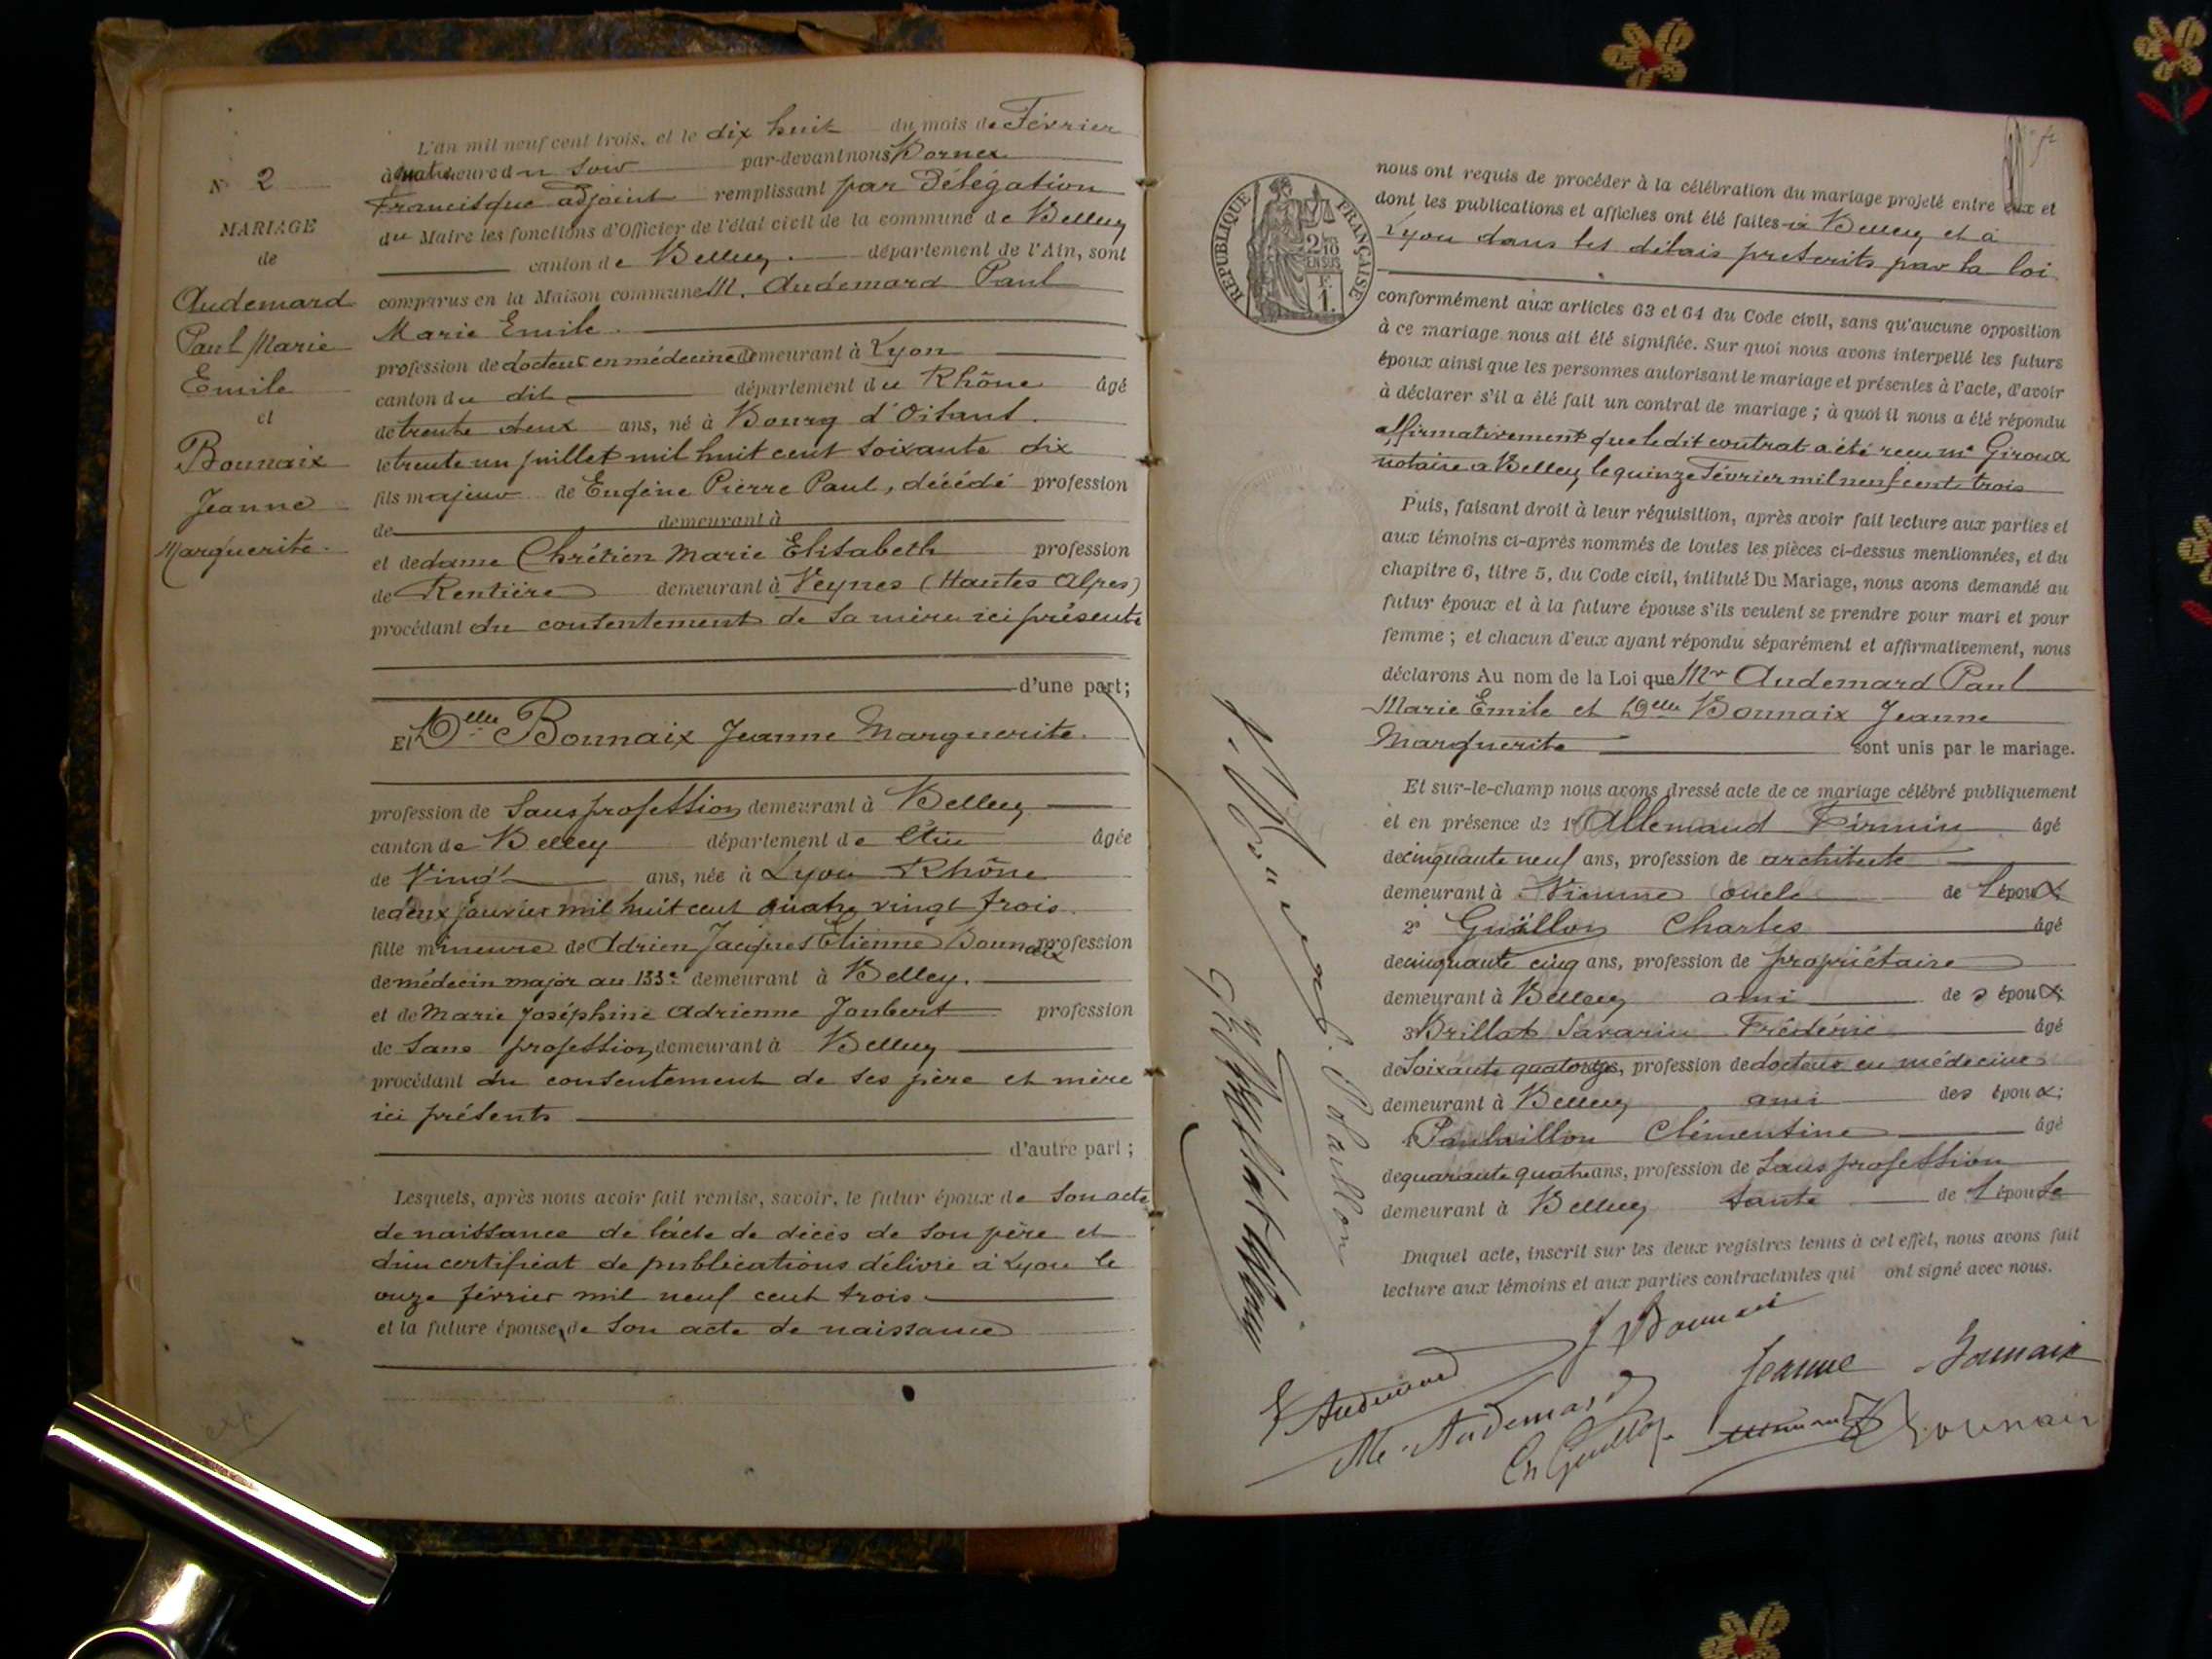 N° 2
MARIAGE
de
Audemard
Paul Marie
Emile
et
Bonnaix
Jeanne
Marguerite.
L'an mil neuf cent trois, et le dix huit du mois de Février
à quatre heure du soir par-devant nous Bornex
Francisque adjoint remplissant par Délégation
du Maire les fonctions d'Officier de l'état civil de la commune de Belley
canton de Belley. département de l'Ain, sont
comparus en la Maison commune M. Audemard Paul
Marie Emile.
profession de docteur en médecine demeurant à Lyon
canton du dit département du Rhône âgé
de trente deux ans, né à Bourg d'Oisans.
le trente un juillet mil huit cent soixante dix
fils majeur de Eugène Pierre Paul, décédé profession
de demeurant à
et de dame Chrétien Marie Elisabeth profession
de Rentière demeurant à Veynes (Hautes Alpes)
procédant du consentement de sa mère ici présente
d'une part;
Et Delle Bonnaix Jeanne Marguerite.
profession de Sans profession demeurant à Belley
canton de Belley département de l'Ain âgée
de Vingt ans, née à Lyon Rhône
le deux janvier mil huit cent quatre vingt trois.
fille mineure de Adrien Jacques Etienne Bonnaix profession
de médecin major au 133e demeurant à Belley.
et de Marie Joséphine Adrienne Joubert profession
de Sans profession demeurant à Belley
procédant du consentement de ses père et mère
ici présents
d'autre part;
Lesquels, après nous avoir fait remise, savoir, le futur époux de son acte
de naissance de l'acte de décès de son père et
d'un certificat de publications délivré à Lyon le
onze février mil neuf cent trois.
et la future épouse, de son acte de naissance
RÉPUBLIQUE FRANÇAISE
2/10
EN SUS
F.
1.
nous ont requis de procéder à la célébration du mariage projeté entre eux et
dont les publications et affiches ont été faites à Belley et à
Lyon dans les délais prescrits par la loi
conformément aux articles 63 et 64 du Code civil, sans qu'aucune opposition
à ce mariage nous ait été signifiée. Sur quoi nous avons interpellé les futurs
époux ainsi que les personnes autorisant le mariage et présentes à l'acte, d'avoir
à déclarer s'il a été fait un contrat de mariage; à quoi il nous a été répondu
affirmativement que le dit contrat a été reçu me Giroux
notaire à Belley le quinze Février mil neuf cent trois
Puis, faisant droit à leur réquisition, après avoir fait lecture aux parties et
aux témoins ci-après nommés de toutes les pièces ci-dessus mentionnées, et du
chapitre 6, titre 5, du Code civil, intitulé Du Mariage, nous avons demandé au
futur époux et à la future épouse s'ils veulent se prendre pour mari et pour
femme; et chacun d'eux ayant répondu séparément et affirmativement, nous
déclarons Au nom de la Loi que Mr Audemard Paul
Marie Emile et Delle Bonnaix Jeanne
Marguerite sont unis par le mariage.
Et sur-le-champ nous avons dressé acte de ce mariage célébré publiquement
et en présence de 1° Allemand Firmin âgé
de cinquante neuf ans, profession de architecte
demeurant à Vienne oncle de l'époux
2° Guillon Charles âgé
de cinquante cinq ans, profession de propriétaire
demeurant à Belley ami des époux;
3° Brillat Savarin Frédéric âgé
de soixante quatorze, profession de docteur en médecine
demeurant à Belley ami des époux;
4° Clémentine âgé
de quarante quatre ans, profession de Sans profession
demeurant à Belley tante de l'épouse
Duquel acte, inscrit sur les deux registres tenus à cet effet, nous avons fait
lecture aux témoins et aux parties contractantes qui ont signé avec nous.
Audemard
J Bonnaix
Jeanne Bonnaix
Me Audemard
Ch Guillon
Bonnaix